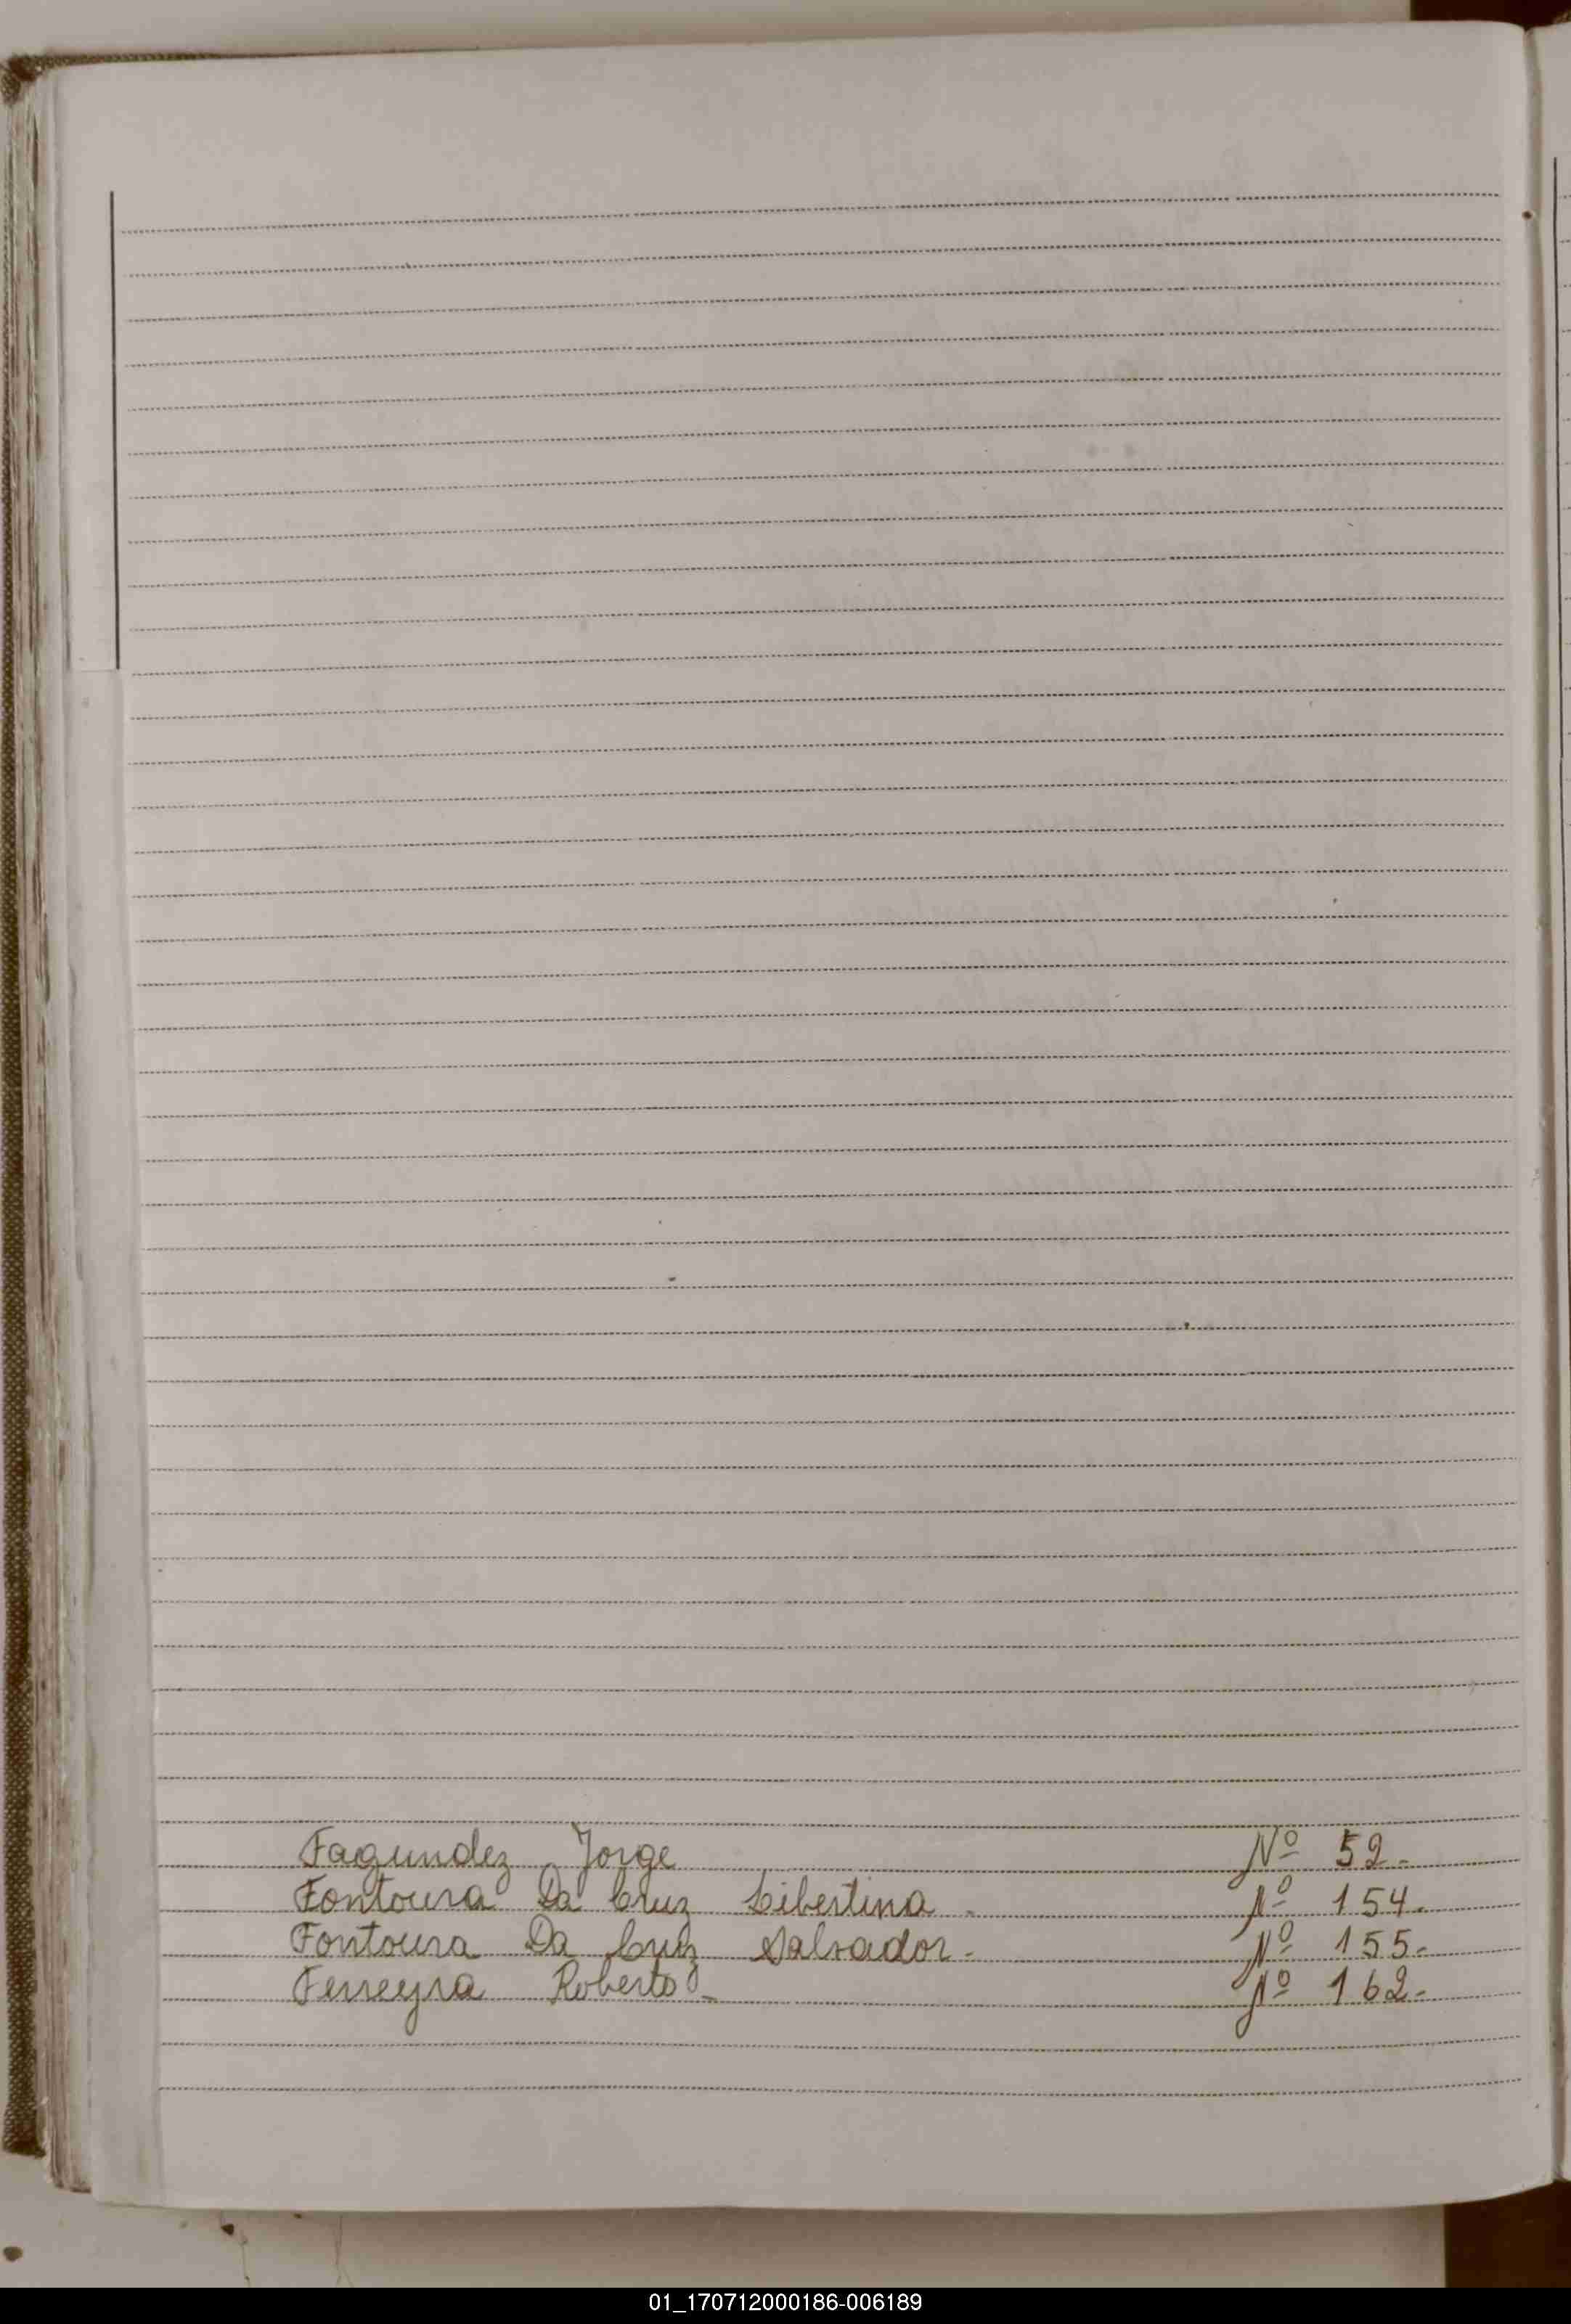 Fagundez Jorge Nº 52.-
Fontoura Da Cruz Libertina - Nº 154.-
Fontoura Da Cruz Salvador.- Nº 155.-
Ferreyra Roberto - Nº 162.-
01_170712000186-006189